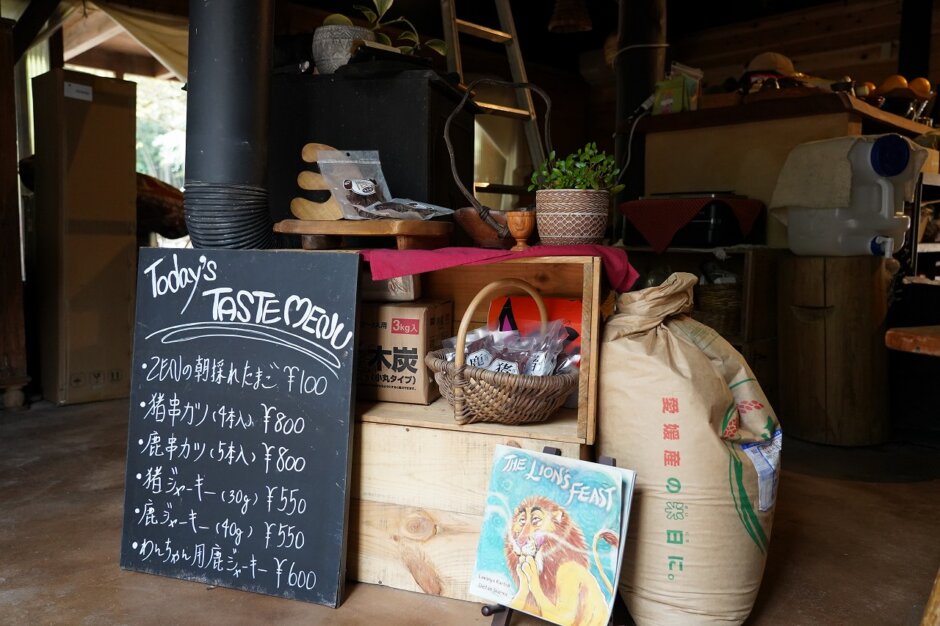 Today's
TASTE MENU
・ZENの朝採れたまご ¥100
・猪串カツ(4本入) ¥800
・鹿串カツ(5本入) ¥800
・猪ジャーキー(30g) ¥550
・鹿ジャーキー(40g) ¥550
・わんちゃん用鹿ジャーキー ¥600
3kg入
木炭
(小丸タイプ)
鹿
猪
THE LION'S FEAST
愛媛産の
日に。